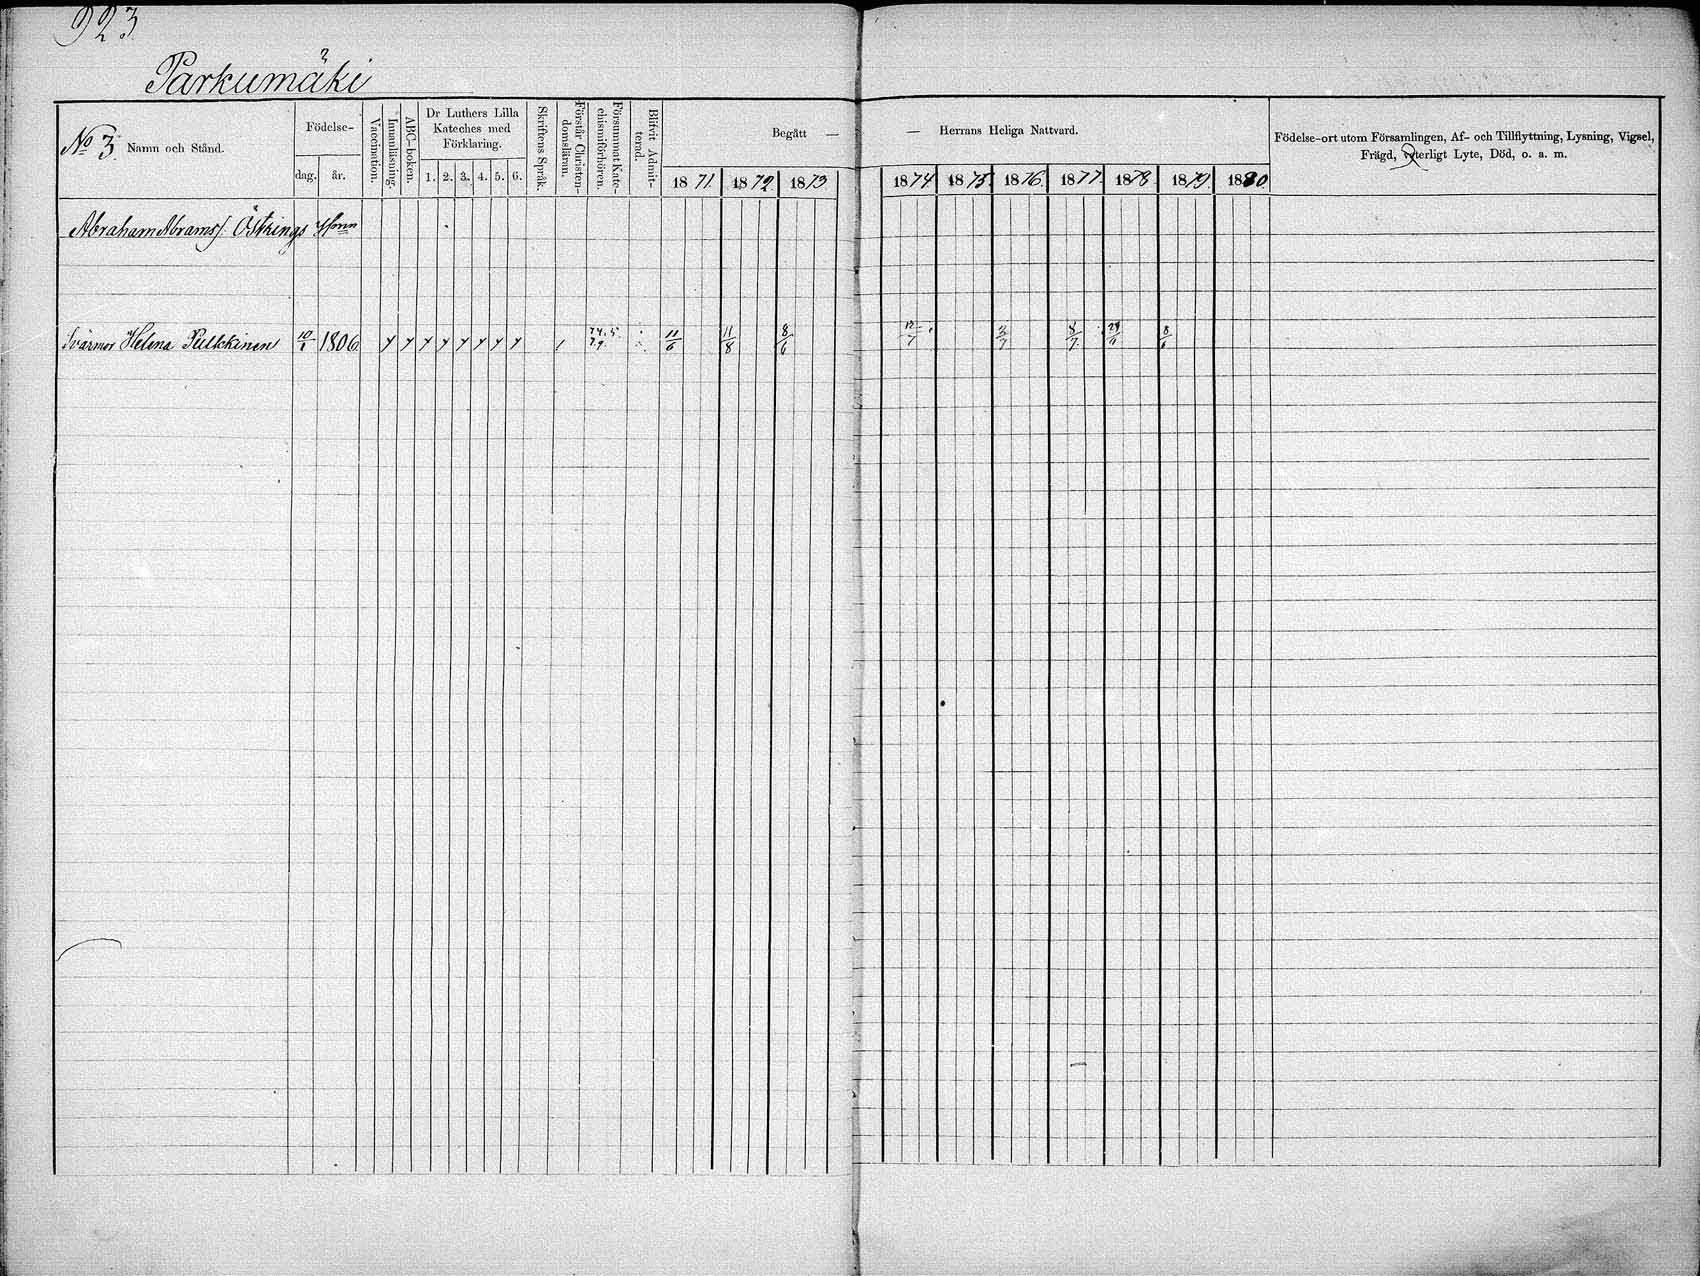 923.
Parkumäki
No 3. Namn och Stånd.
Födelse-
dag. år.
Vaccination.
Innanläsning.
ABC-boken.
Dr Luthers Lilla
Kateches med
Förklaring.
1. 2. 3. 4. 5. 6.
Skriftens Språk.
Förstår Christen-
domsläran.
Försummat Kate-
chismiförhören.
Blifvit Admit-
terad.
Begått —
1871. 1872. 1873
— Herrans Heliga Nattvard.
1874 1875. 1876. 1877. 1878 1879. 1880.
Födelse-ort utom Församlingen, Af- och Tillflyttning, Lysning, Vigsel,
Frägd, ytterligt Lyte, Död, o. a. m.
Abraham Abramsf. Östrings
Svärmor Helena Pulkkinen 10/1 1806. 74.5 79. 11/6 11/8 8/6 12/7 2/7 8/7 8/6